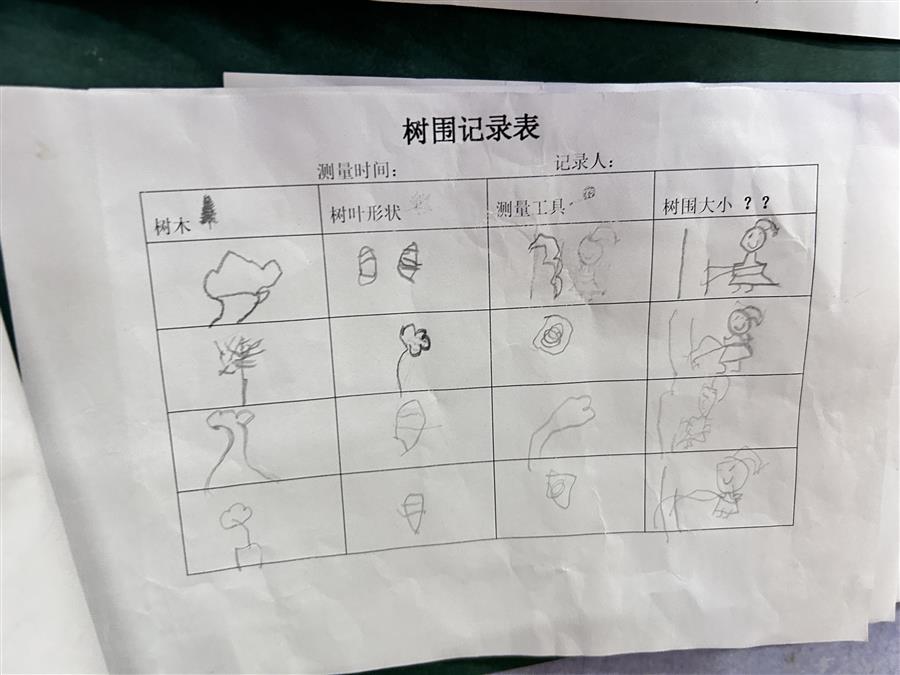 树围记录表
测量时间： 记录人：
树木 树叶形状 测量工具 树围大小 ？？